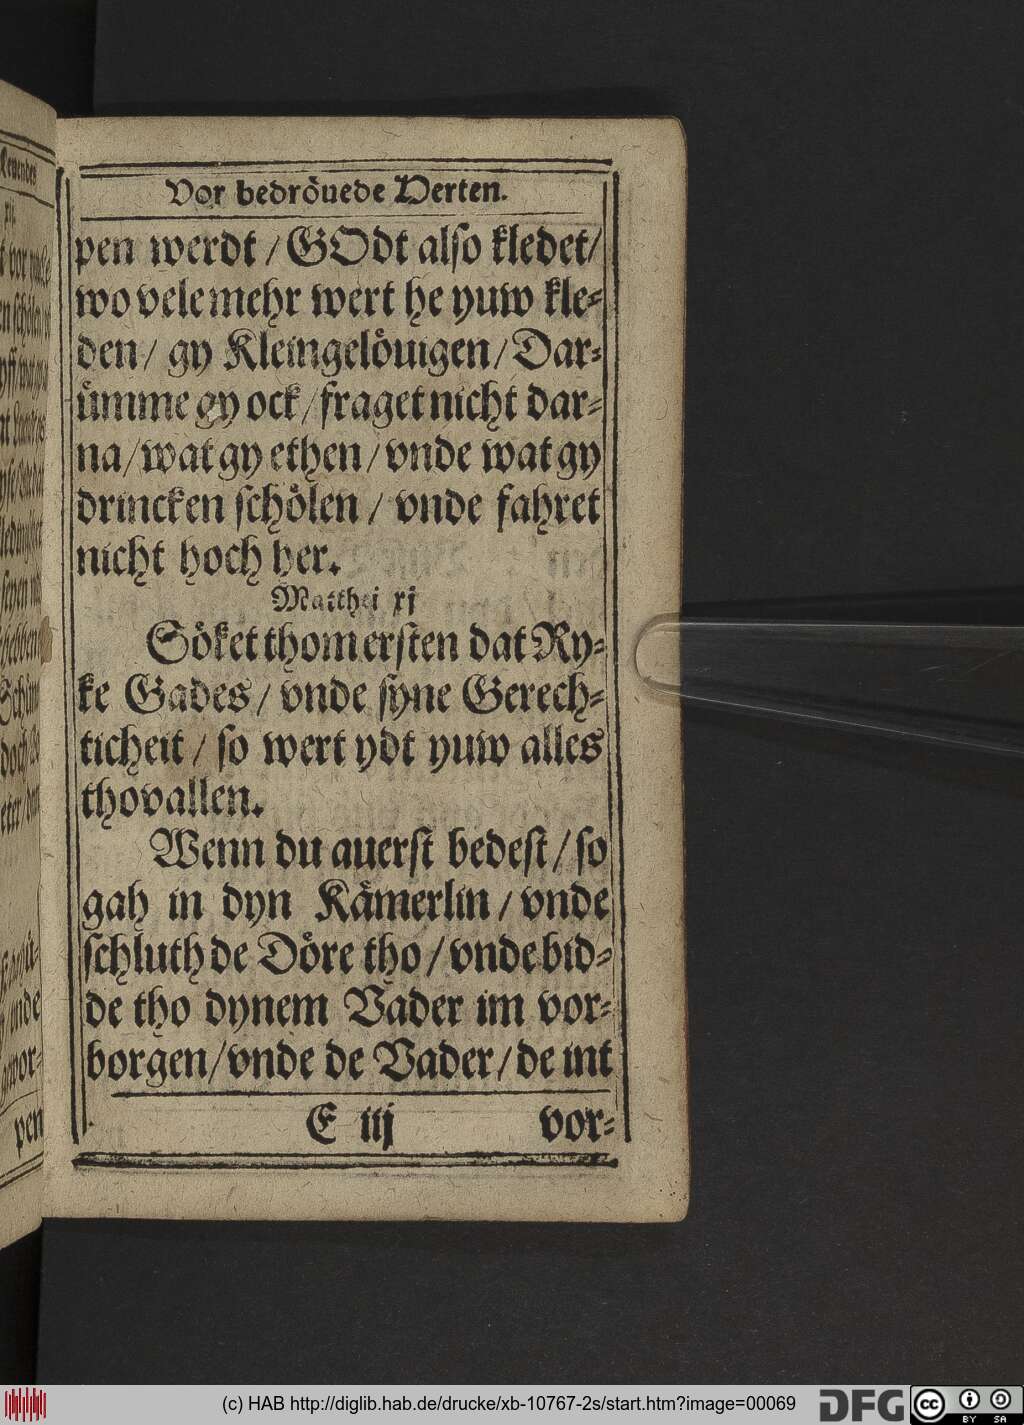 Vor bedröuede Herten.
pen werdt / GOdt also kledet/
wo vele mehr wert he yuw kle-
den / gy Kleingelöuigen / Dar-
ümme gy ock / fraget nicht dar-
na / wat gy ethen / vnde wat gy
drincken schölen / vnde fahret
nicht hoch her.
Matthei xj
Söket thom ersten dat Ry-
ke Gades / vnde syne Gerech-
ticheit / so wert ydt yuw alles
thovallen.
Wenn du auerst bedest / so
gah in dyn Kämerlin / vnde
schluth de Döre tho / vnde bid-
de tho dynem Vader im vor-
borgen / vnde de Vader / de int
E iij vor-
pen
(c) HAB http://diglib.hab.de/drucke/xb-10767-2s/start.htm?image=00069
DFG
cc
BY SA